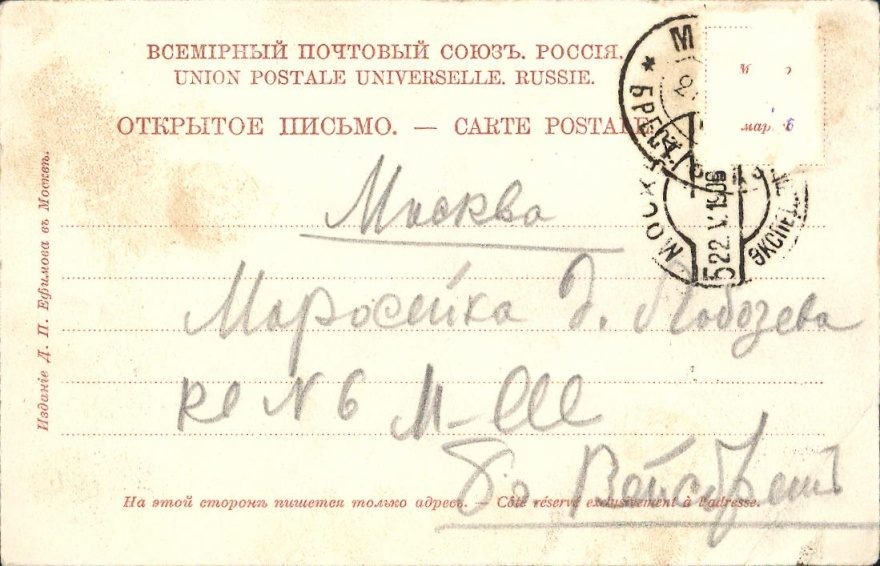 ВСЕМІРНЫЙ ПОЧТОВЫЙ СОЮЗЪ. РОССІЯ.
UNION POSTALE UNIVERSELLE. RUSSIE.
ОТКРЫТОЕ ПИСЬМО. — CARTE POSTALE.
Москва
Маросейка д. Лобозева
кв N 6 М-lle
Вейсбретъ
На этой сторонѣ пишется только адресъ. Côté réservé exclusivement à l'adresse.
Изданіе Д. П. Ефимова въ Москвѣ.
МОСК
5 22. V. 1906
ЭКСПЕД